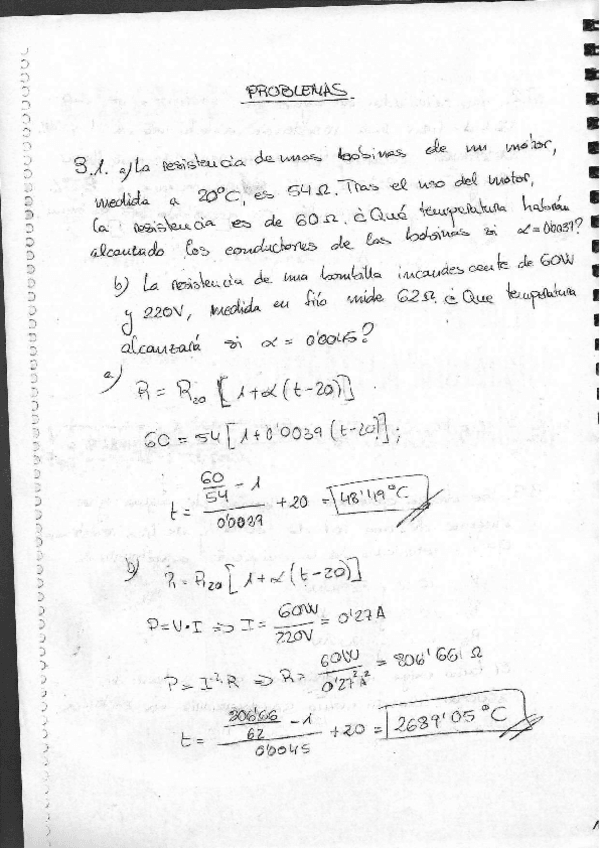 PROBLEMAS
3.1. a) La resistencia de unas bobinas de un motor,
medida a 20°C, es 54Ω. Tras el uso del motor,
la resistencia es de 60Ω. ¿Qué temperatura habrán
alcanzado los conductores de las bobinas si α=0'0039?
b) La resistencia de una bombilla incandescente de 60W
y 220V, medida en frío mide 62Ω. ¿Que temperatura
alcanzará si α = 0'0045?
a)
R = R20 [1+α(t-20)]
60 = 54 [1+0'0039 (t-20)];
t = (60/54 - 1)/0'0039 + 20 = 48'49°C
b)
R = R20 [1+α(t-20)]
P=V·I => I = 60W/220V = 0'27A
P = I²·R => R = 60W/0'27²A² = 806'66 Ω
t = (806'66/62 - 1)/0'0045 + 20 = 2689'05°C